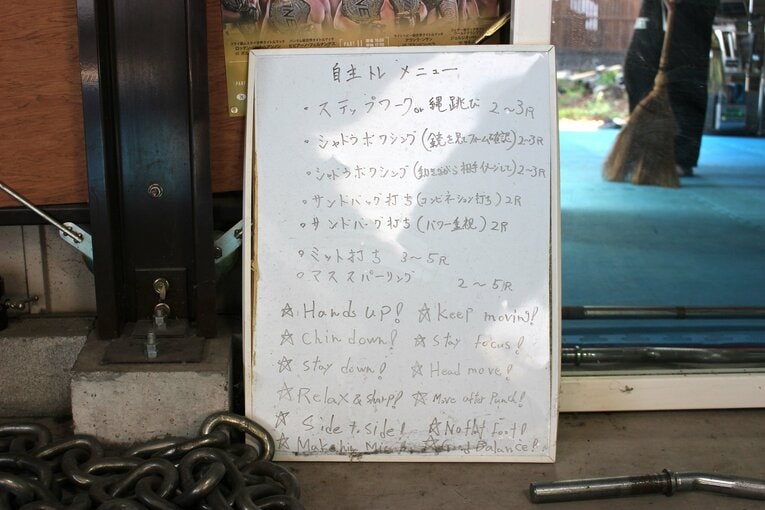 自主トレメニュー
・ステップワーク or 縄跳び 2〜3R
・シャドウボクシング(鏡を見てフォーム確認) 2〜3R
・シャドウボクシング(動きながら相手イメージして) 2〜3R
・サンドバッグ打ち(コンビネーション打ち) 2R
・サンドバッグ打ち(パワー重視) 2R
・ミット打ち 3〜5R
・マススパーリング 2〜5R
☆ Hands up! ☆ Keep moving!
☆ Chin down! ☆ Stay focus!
☆ Stay down! ☆ Head move!
☆ Relax & sharp! ☆ Move after Punch!
☆ Side to side! ☆ Not flat foot!
☆ Make him Miss! ☆ Good Balance!